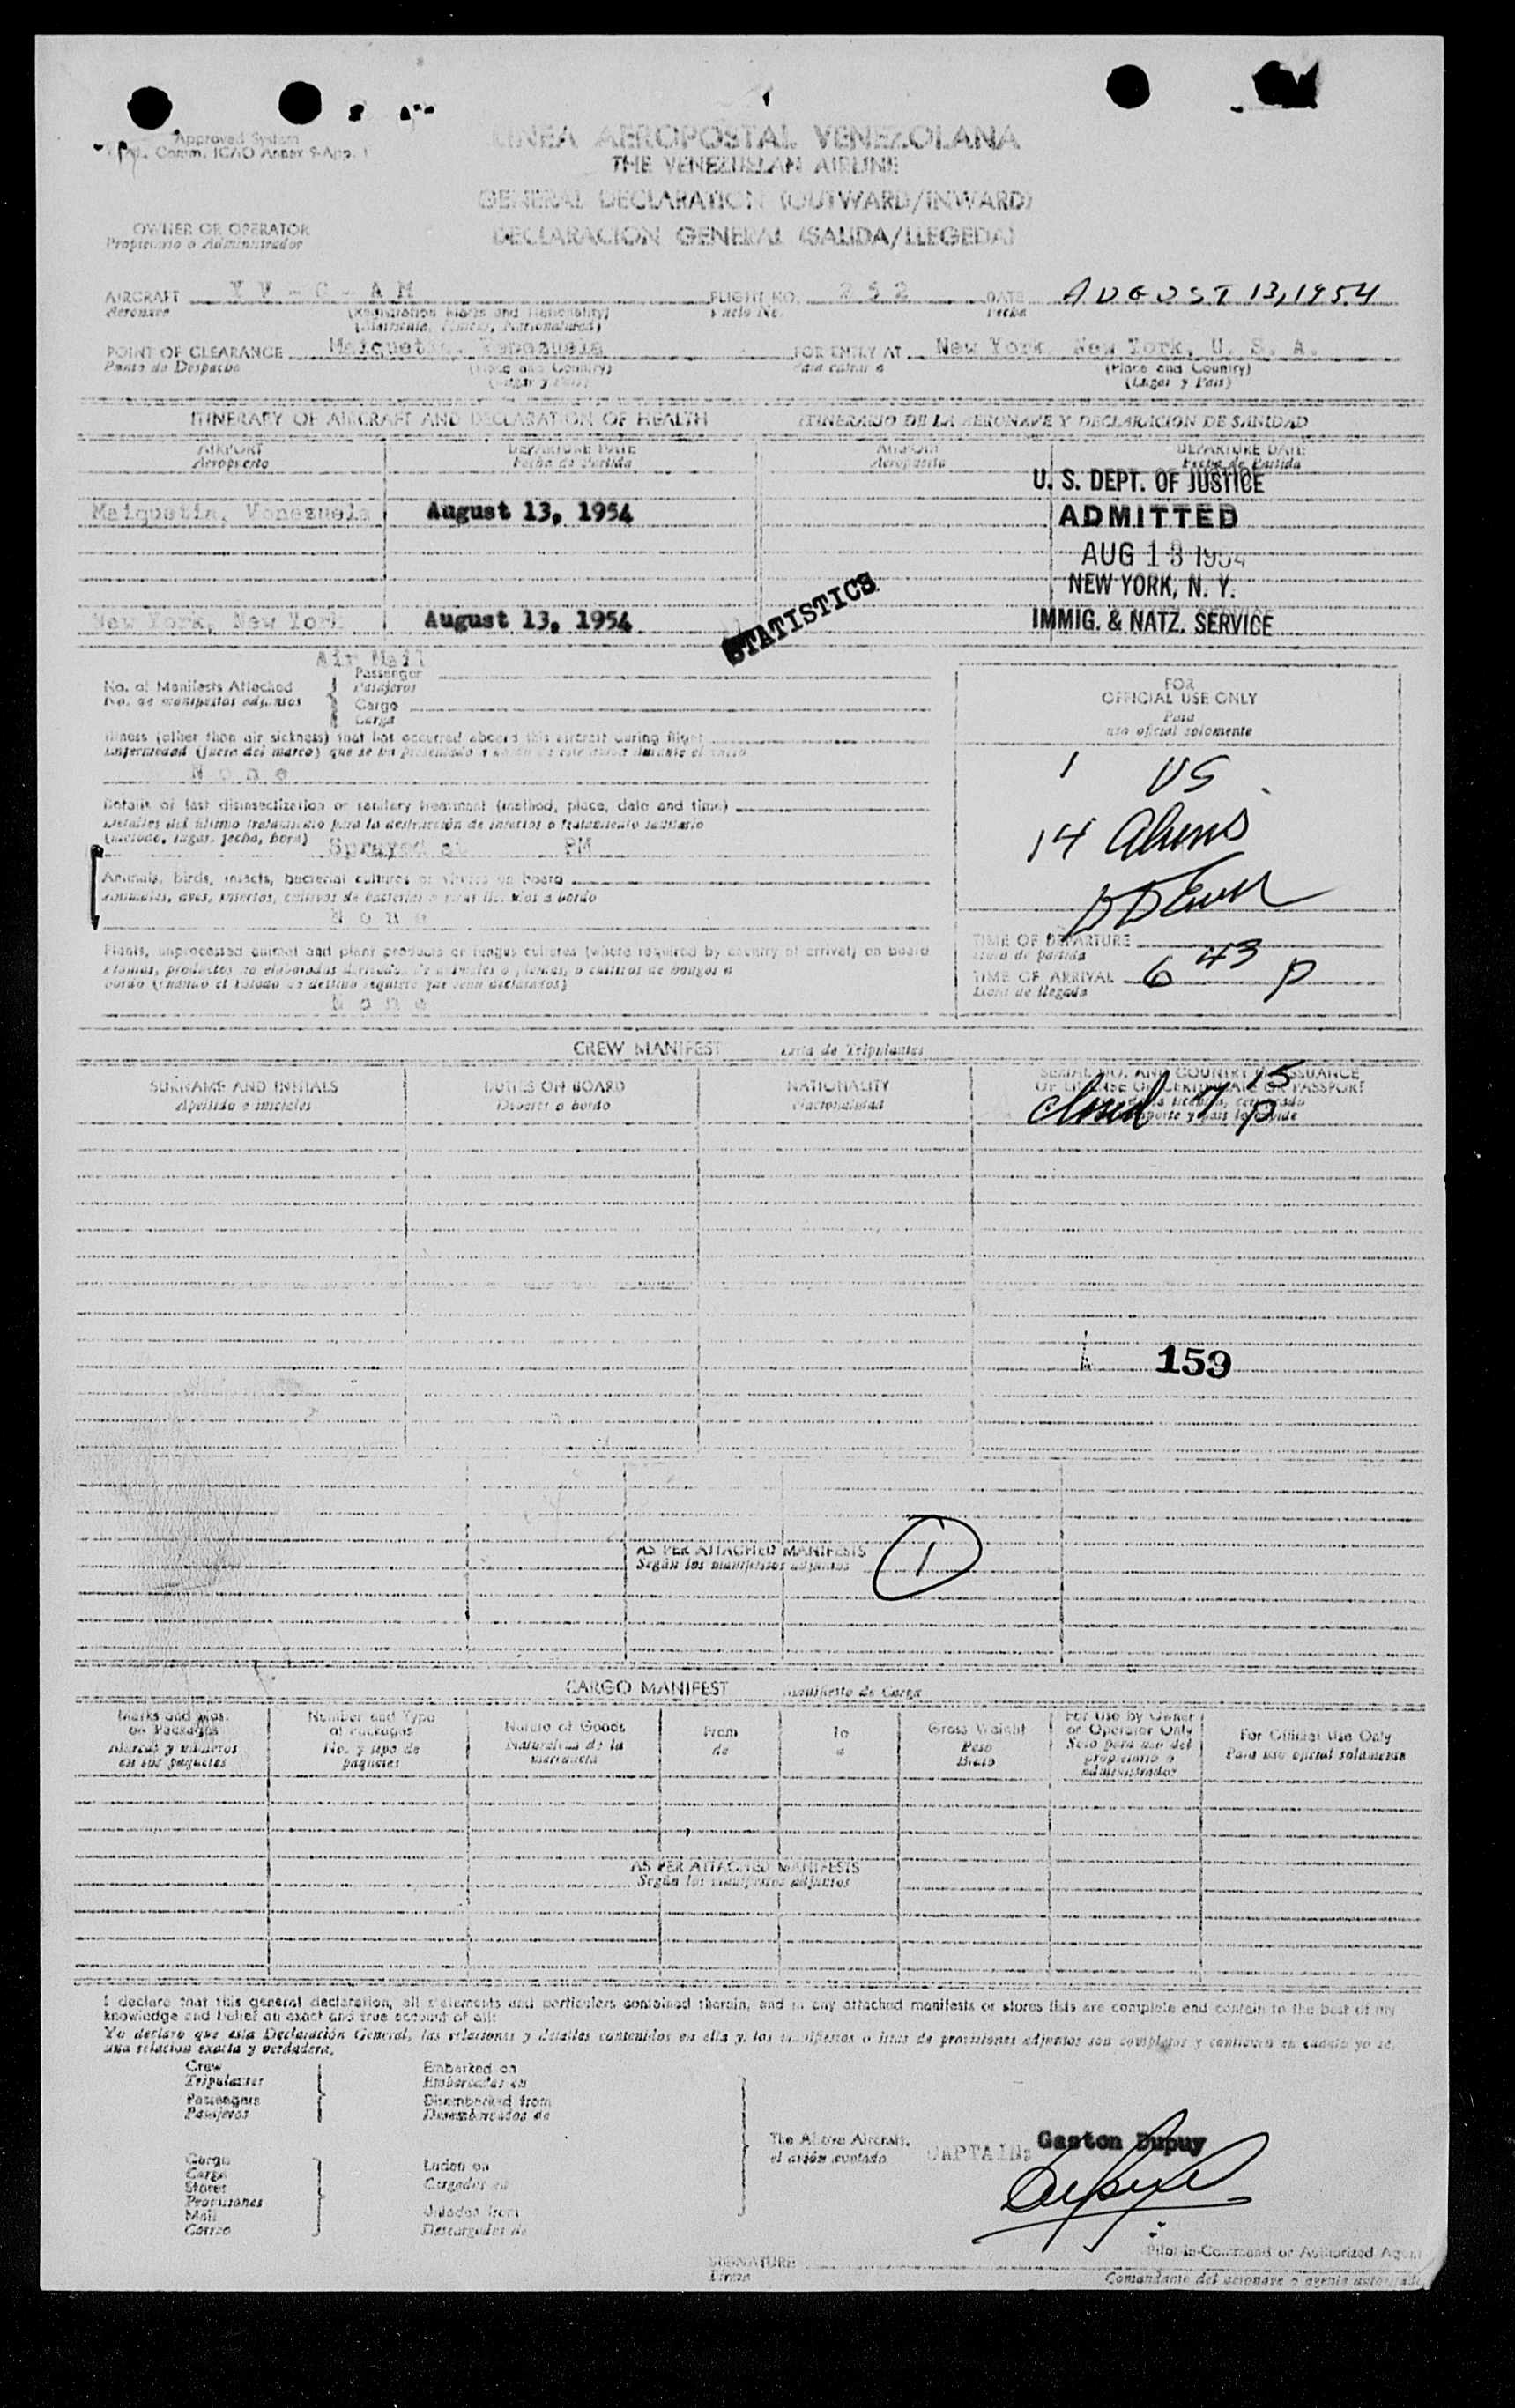 Approved System
Comm. ICAO Annex 9-App. 1
LINEA AEROPOSTAL VENEZOLANA
THE VENEZUELAN AIRLINE
GENERAL DECLARATION (OUTWARD/INWARD)
DECLARACION GENERAL (SALIDA/LLEGEDA)
OWNER OR OPERATOR
Propietario o Administrador
AIRCRAFT YV - C - AM FLIGHT NO. 252 DATE AUGUST 13, 1954
Aeronave (Registration Marks and Nationality) Vuelo No. Fecha
POINT OF CLEARANCE Maiquetia, Venezuela FOR ENTRY AT New York, New York, U. S. A.
Punto de Despacho (Place and Country) Para entrar a (Place and Country)
(Lugar y Pais) (Lugar y Pais)
ITINERARY OF AIRCRAFT AND DECLARATION OF HEALTH ITINERARIO DE LA AERONAVE Y DECLARACION DE SANIDAD
AIRPORT DEPARTURE DATE AIRPORT DEPARTURE DATE
Aeropuerto Fecha de Partida Aeropuerto Fecha de Partida
U. S. DEPT. OF JUSTICE
Maiquetia, Venezuela August 13, 1954 ADMITTED
AUG 13 1954
NEW YORK, N. Y.
STATISTICS
New York, New York August 13, 1954 IMMIG. & NATZ. SERVICE
Air Mail
Passenger
No. of Manifests Attached Pasajeros
No. de manifiestos adjuntos Cargo
Carga
FOR
OFFICIAL USE ONLY
Para
uso oficial solomente
Illness (other than air sickness) that has occurred aboard this aircraft during flight
None
1 US
Details of last disinsectization or sanitary treatment (method, place, date and time)
Detalles del último tratamiento para la destrucción de insectos o tratamiento sanitario
(método, lugar, fecha, hora) Sprayed at PM
14 Aliens
Animals, birds, insects, bacterial cultures or viruses on board
None
Plants, unprocessed animal and plant products or fungus cultures (where required by country of arrival) on board
None
TIME OF DEPARTURE
Hora de partida
TIME OF ARRIVAL 6 43 P
Hora de llegada
CREW MANIFEST Lista de Tripulantes
SURNAME AND INITIALS DUTIES ON BOARD NATIONALITY SERIAL NO. AND COUNTRY OF ISSUANCE
OF LICENSE OR CERTIFICATE OR PASSPORT
Apellido e iniciales Deberes a bordo Nacionalidad
Closed 7 15 P
159
AS PER ATTACHED MANIFESTS
Según los manifiestos adjuntos
1
CARGO MANIFEST Manifiesto de Carga
Marks and Nos. on Packages
Marcas y números en sus paquetes
Number and Type of Packages
No. y tipo de paquetes
Nature of Goods
Naturaleza de la mercancia
From
de
To
a
Gross Weight
Peso Bruto
For Use by Owner or Operator Only
Solo para uso del propietario o administrador
For Official Use Only
Para uso oficial solamente
AS PER ATTACHED MANIFESTS
Según los manifiestos adjuntos
I declare that this general declaration, all statements and particulars contained therein, and in any attached manifests or stores lists are complete and contain to the best of my
knowledge and belief an exact and true account of all:
Yo declaro que esta Declaración General, las relaciones y detalles contenidos en ella y los manifiestos o listas de provisiones adjuntos son completos y contienen en cuanto yo sé,
una relación exacta y verdadera.
Crew Embarked on
Tripulantes Embarcados en
Passengers Disembarked from
Pasajeros Desembarcados de
The Above Aircraft.
el avión anotado
CAPTAIN: Gaston Dupuy
Cargo Laden on
Carga Cargados en
Stores
Provisiones
Mail Unladen from
Correo Descargados de
Pilot-in-Command or Authorized Agent
SIGNATURE
Firma
Comandante del aeronave o agente autorizado